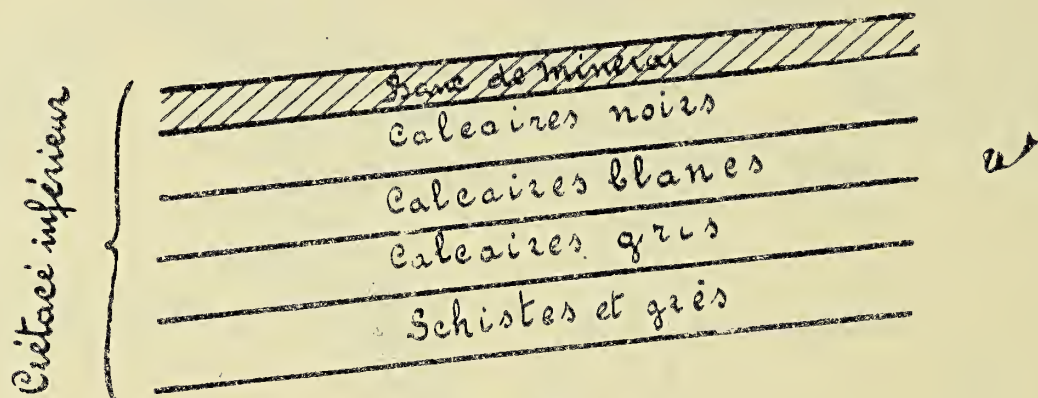 Crétacé inférieur
Banc de minerai
Calcaires noirs
Calcaires blancs
Calcaires gris
Schistes et grès